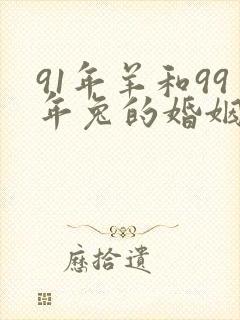 91年羊和99
年兔的婚姻
歷拾遺